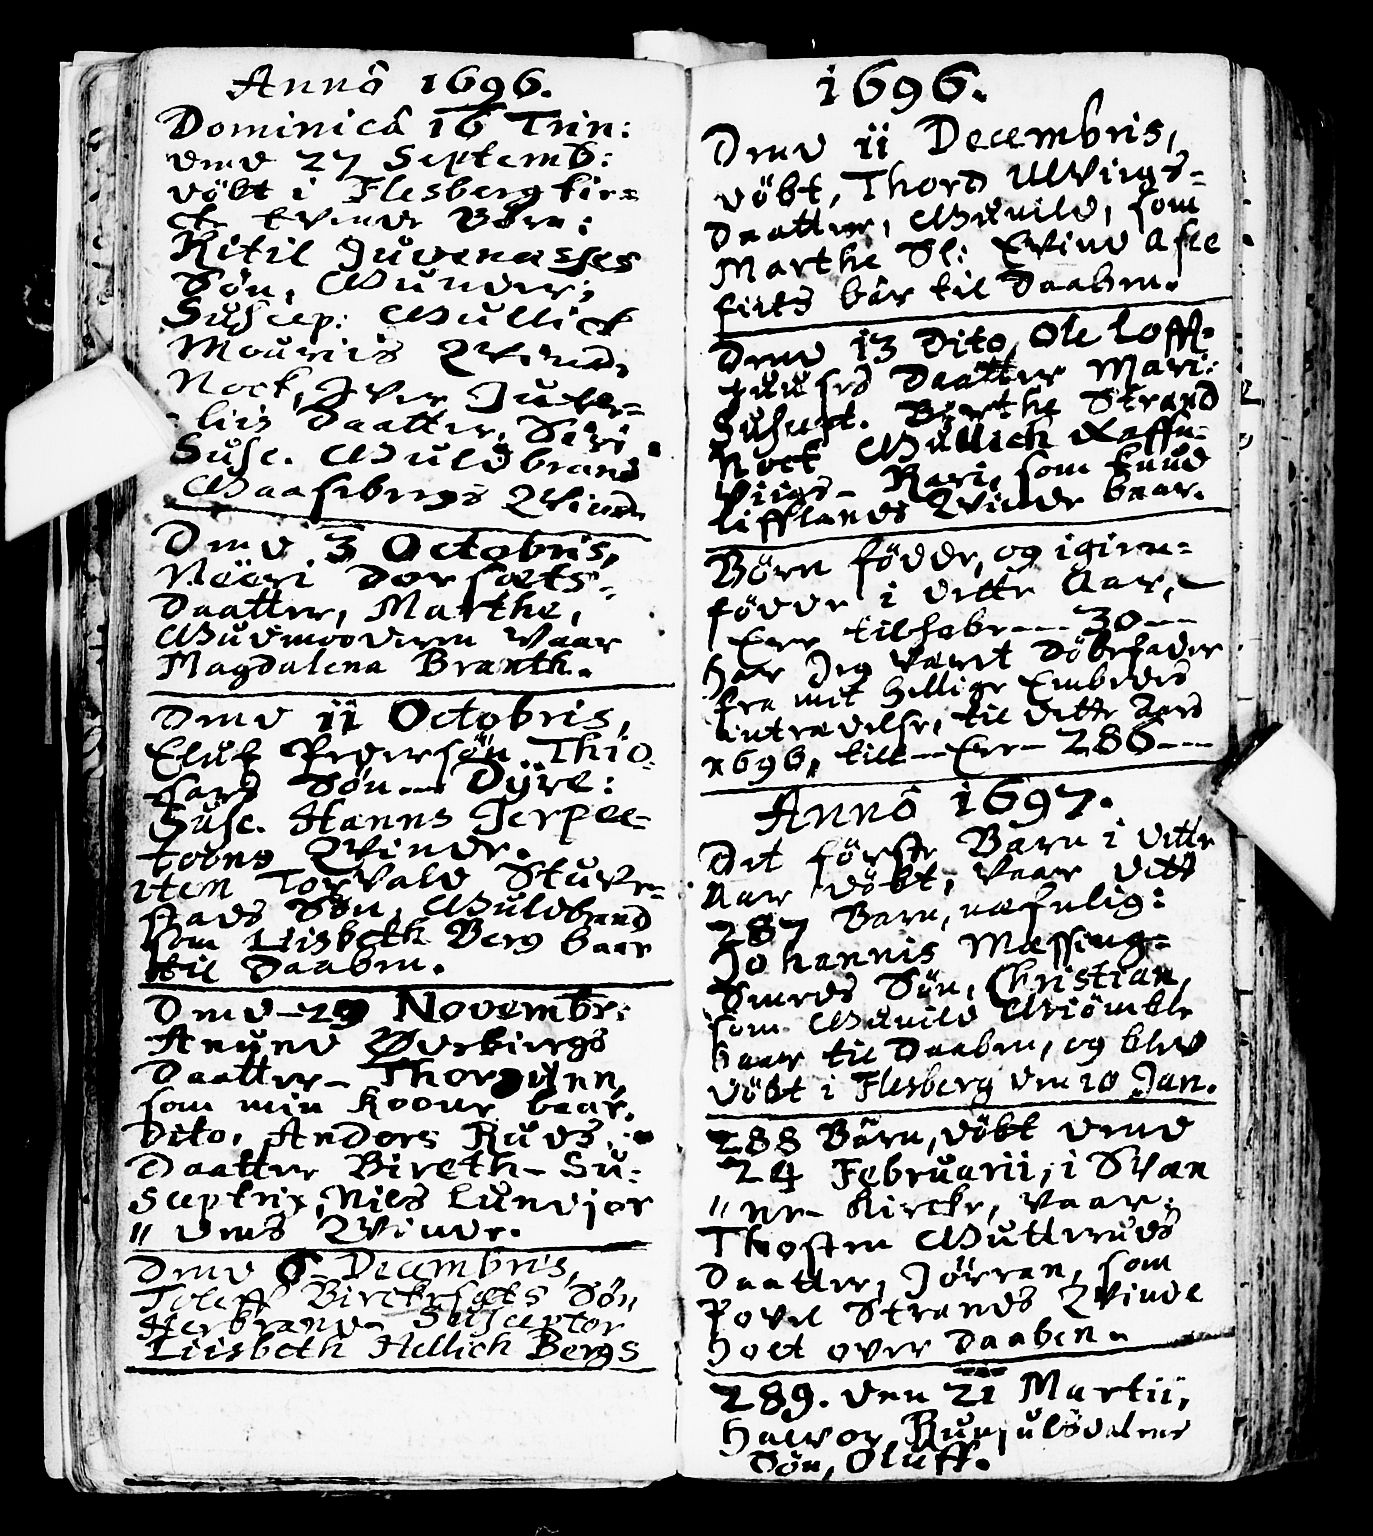 Annô 1696.
Dominicâ 16 Trin:
dend 27 Septemb:
döbt i Flesberg kir=
cke tvende Börn:
Kitil Juvenæsses
Sön, Gunder;
Suscep: Gullick
Mouriis Qvinde,
Nock, Iver Juver=
liis Daatter, Sari
Susc. Guldbrand
Gaasebergs Qvinde
Dend 3 Octobris,
Nëëri Dorsæts=
Daatter, Marthe,
Gudmooderen Vaar
Magdalena Branth.
Dend 11 Octobris,
Eluf Pedersön Thio-
fars Sön Dÿre:
Susc. Hanns Jerpee=
tobns Qvinde.
item Torvald Stuve=
stads Sön, Guldbrand
som Liisbeth Berg baar
til Daaben.
Dend 29 Novembr:
Anund Øvrbiergs
Daatter Thorgunn,
som min Koone baar.
Dito, Anders Ruds
Daatter Bireth Su=
sceptrix, Nils Lundjor
" dens Qvinde.
Dend 6 Decembris,
Toleff Birckesæts Sön
Herbrand Susceptor
Liisbeth Hellick Bergs
1696.
Dend 11 Decembris,
döbt, Thord Ulviigs=
Daatter, Gunild, som
Marthe Sl: Evind Aslefiets bar til Daaben.
Dend 13 Dito, Ole Loff=
tuusrd Daatter Mari:
Suscept. Berthe Strand
Nock Gullich Raffn=
Viigs Kari, som Knud
Lifflands Qvinde baar.
Börn födde, og igien=
födde i dette Aar,
Ere tilhabe 30
Har Jeg Været Döbefader
fra mit hellige Embedes
intrædelse, til dette Aars
1696, till Ere 286
Annô 1697.
Det förste Barn i dette
Aar döbt, Vaar dett
287 Barn, næfnlig:
Johannis Mæssing=
Smeds Sön, Christian,
som Gunild Miömble
baar til Daaben, og blev
döbt i Flesberg den 10 Jan.
288 Barn, döbt dend
24 Februarii, i Svæn
" ne Kircke, Vaar;
Thosten Gulleruds
Daatter, Jörran, som
Povel Strands Qvinde
holt over Daaben
289. den 21 Martii,
Halvor Ruenulsdalens
Sön, Oluff.